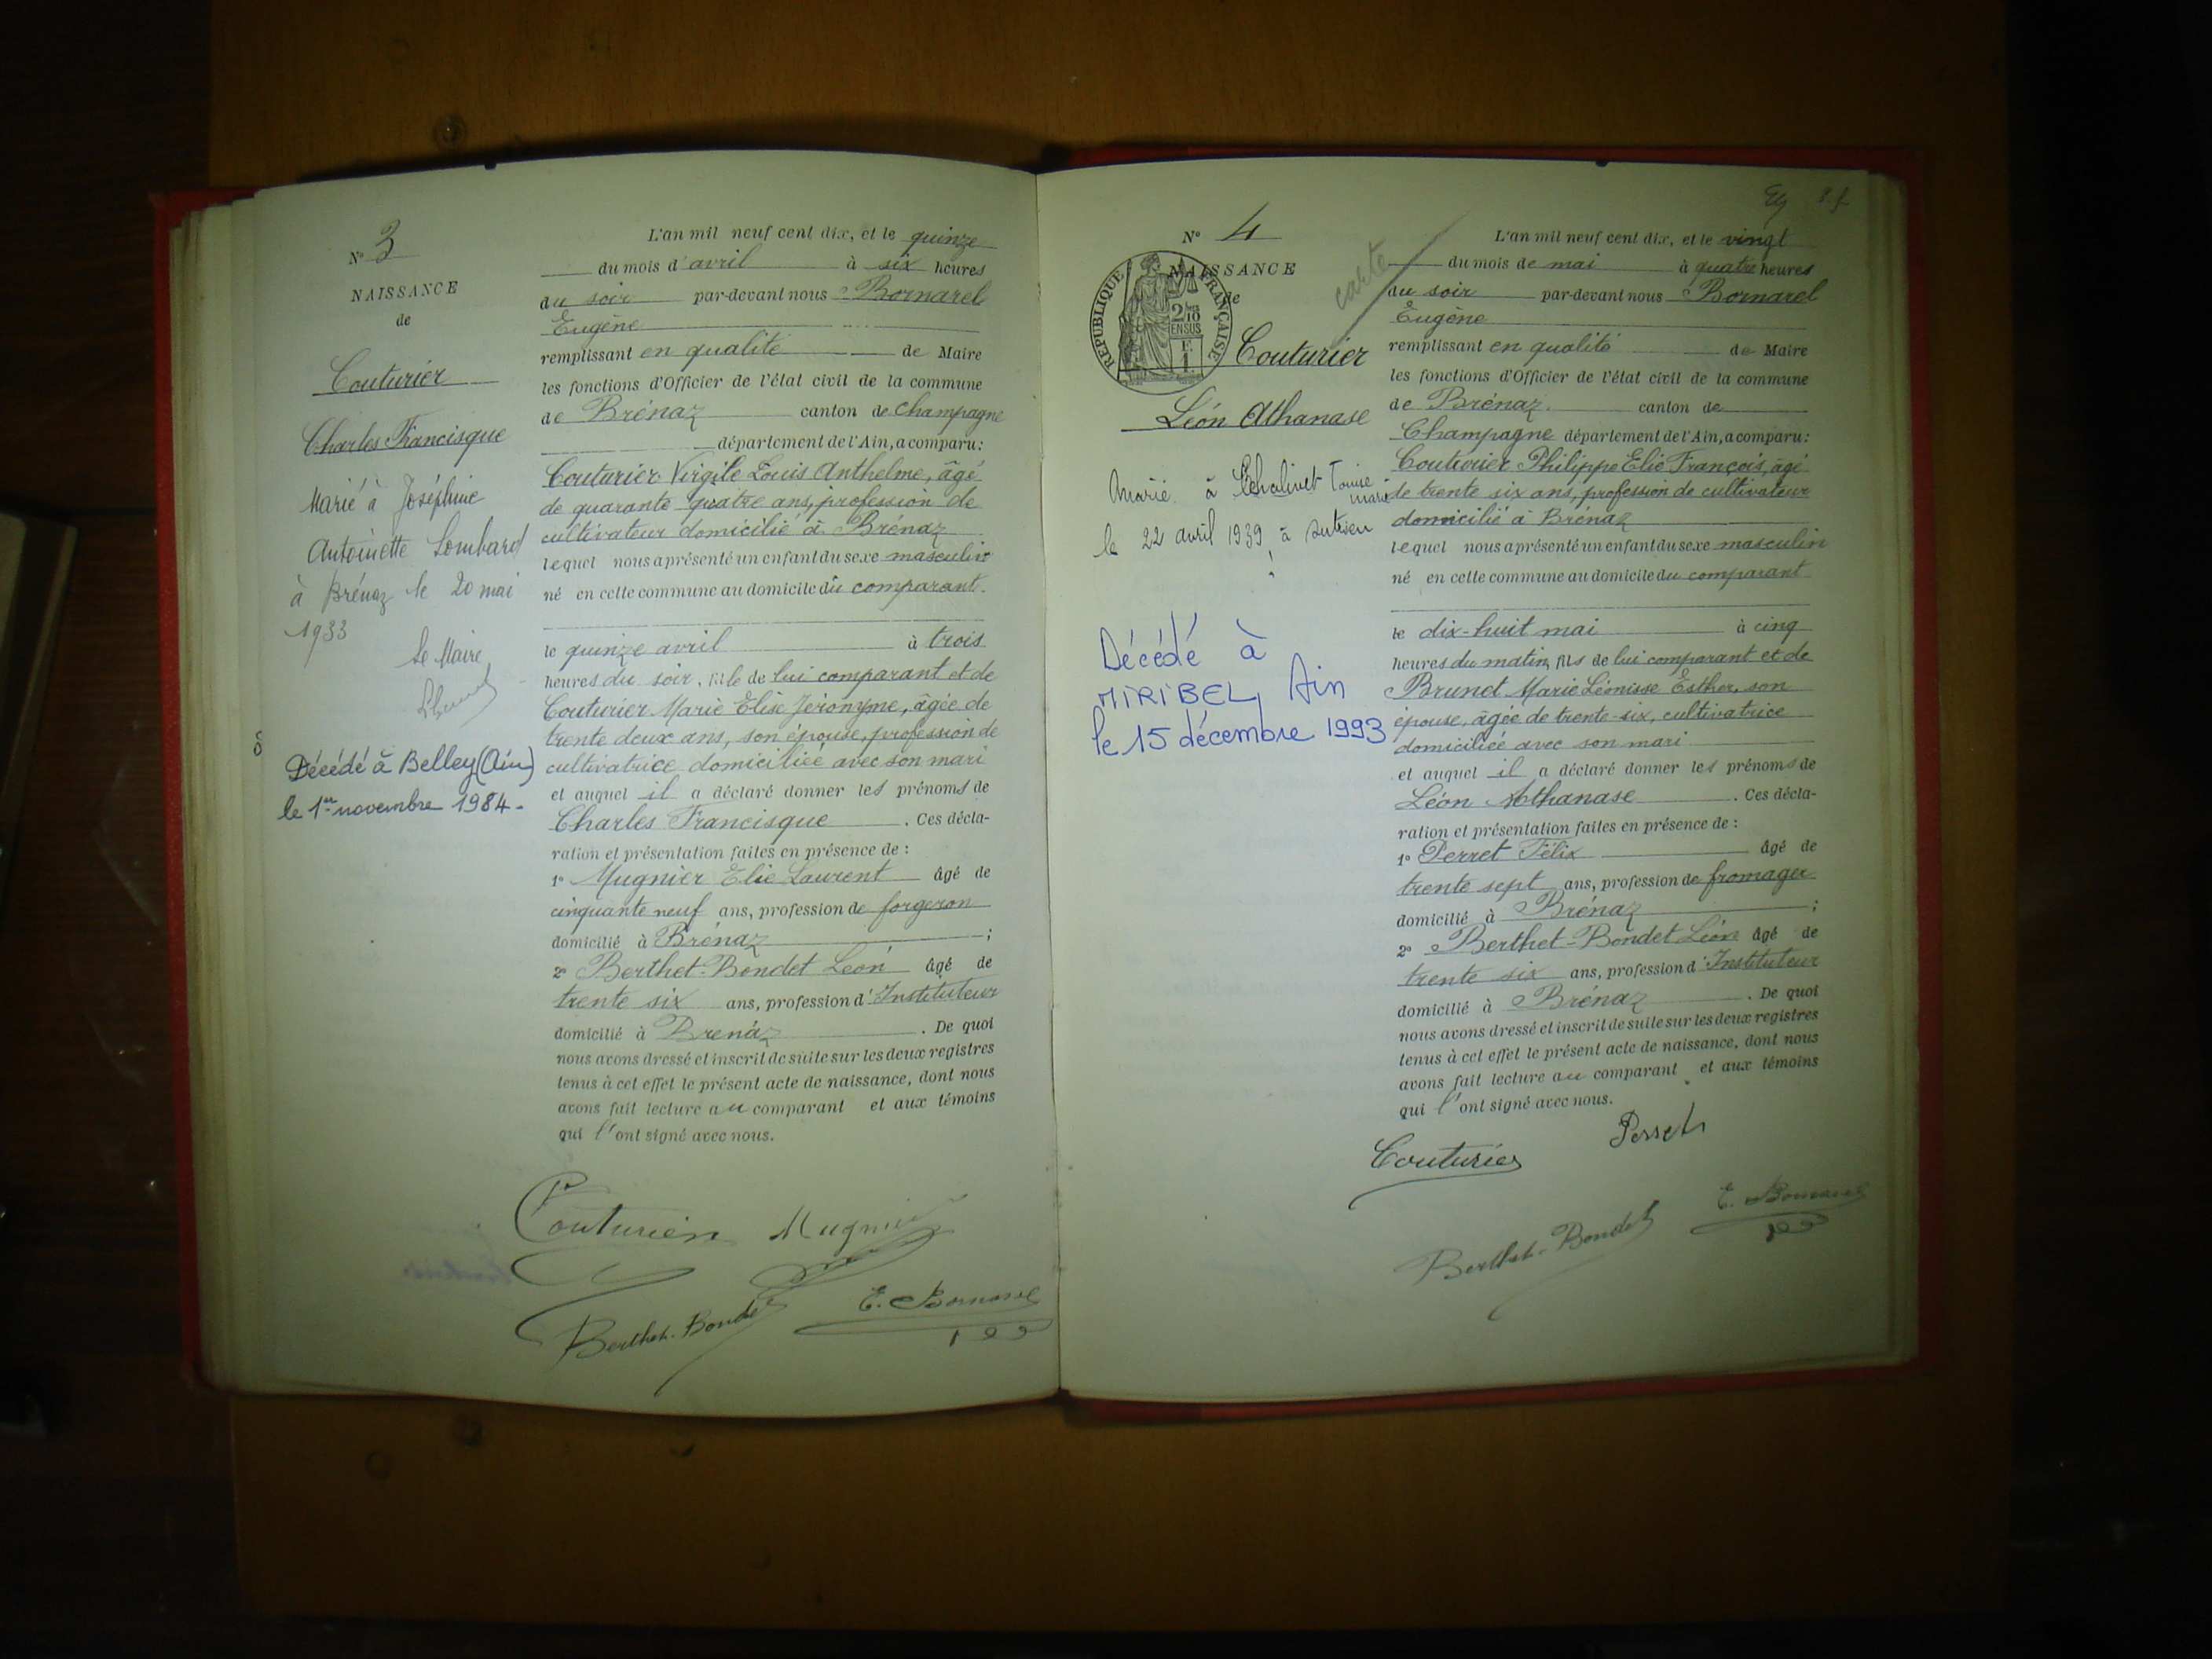 N° 3
NAISSANCE
de
Couturier
Charles Francisque
Marié à Joséphine
Antoinette Lombard
à Brénaz le 20 mai
1933
Le Maire
Décédé à Belley (Ain)
le 1er novembre 1984.
L'an mil neuf cent dix, et le quinze
du mois d'avril à six heures
du soir par-devant nous Bornarel
Eugène
remplissant en qualité de Maire
les fonctions d'Officier de l'état civil de la commune
de Brénaz canton de Champagne
département de l'Ain, a comparu:
Couturier Virgile Louis Anthelme, âgé
de quarante quatre ans, profession de
cultivateur domicilié à Brénaz
lequel nous a présenté un enfant du sexe masculin
né en cette commune au domicile du comparant.
le quinze avril à trois
heures du soir, fils de lui comparant et de
Couturier Marie Elise Jéronyme, âgée de
trente deux ans, son épouse, profession de
cultivatrice domiciliée avec son mari
et auquel il a déclaré donner les prénoms de
Charles Francisque. Ces décla-
ration et présentation faites en présence de :
1° Mugnier Elie Laurent âgé de
cinquante neuf ans, profession de forgeron
domicilié à Brénaz ;
2° Berthet-Bondet Léon âgé de
trente six ans, profession d'Instituteur
domicilié à Brénaz. De quoi
nous avons dressé et inscrit de suite sur les deux registres
tenus à cet effet le présent acte de naissance, dont nous
avons fait lecture au comparant et aux témoins
qui l'ont signé avec nous.
Couturier Mugnier
Berthet-Bondet E. Bornarel
N° 4
NAISSANCE
de
REPUBLIQUE FRANÇAISE
2/10
EN SUS
carte
Couturier
Léon Athanase
Marié à Louise
Marie
le 22 avril 1939, à Sutrieu
Décédé à
MIRIBEL, Ain
le 15 décembre 1993
L'an mil neuf cent dix, et le vingt
du mois de mai à quatre heures
du soir par-devant nous Bornarel
Eugène
remplissant en qualité de Maire
les fonctions d'Officier de l'état civil de la commune
de Brénaz. canton de
Champagne département de l'Ain, a comparu:
Couturier Philippe Elie François, âgé
de trente six ans, profession de cultivateur
domicilié à Brénaz
lequel nous a présenté un enfant du sexe masculin
né en cette commune au domicile du comparant
le dix-huit mai à cinq
heures du matin, fils de lui comparant et de
Brunet Marie Léonisse Esther, son
épouse, âgée de trente-six, cultivatrice
domiciliée avec son mari
et auquel il a déclaré donner les prénoms de
Léon Athanase. Ces décla-
ration et présentation faites en présence de :
1° Perret Félix âgé de
trente sept ans, profession de fromager
domicilié à Brénaz ;
2° Berthet-Bondet Léon âgé de
trente six ans, profession d'Instituteur
domicilié à Brénaz. De quoi
nous avons dressé et inscrit de suite sur les deux registres
tenus à cet effet le présent acte de naissance, dont nous
avons fait lecture au comparant et aux témoins
qui l'ont signé avec nous.
Couturier Perret
Berthet-Bondet E. Bornarel